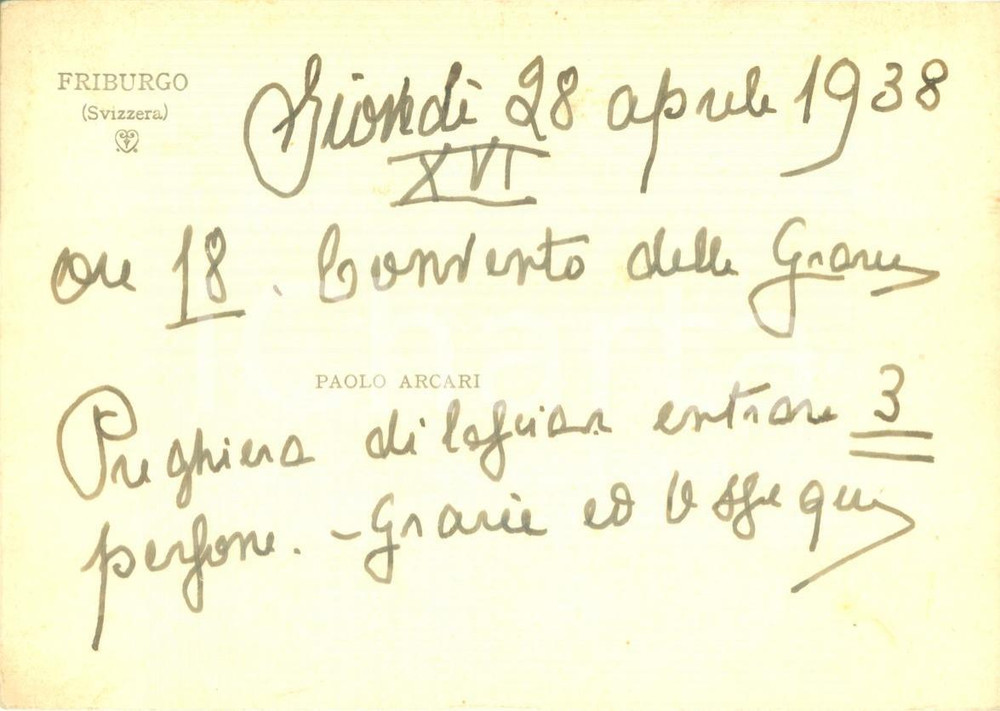 FRIBURGO
(Svizzera)
Giovedì 28 aprile 1938
XVI
ore 18. Convento delle Grazie
PAOLO ARCARI
Preghiera di lasciar entrare 3
persone. - Grazie ed ossequi